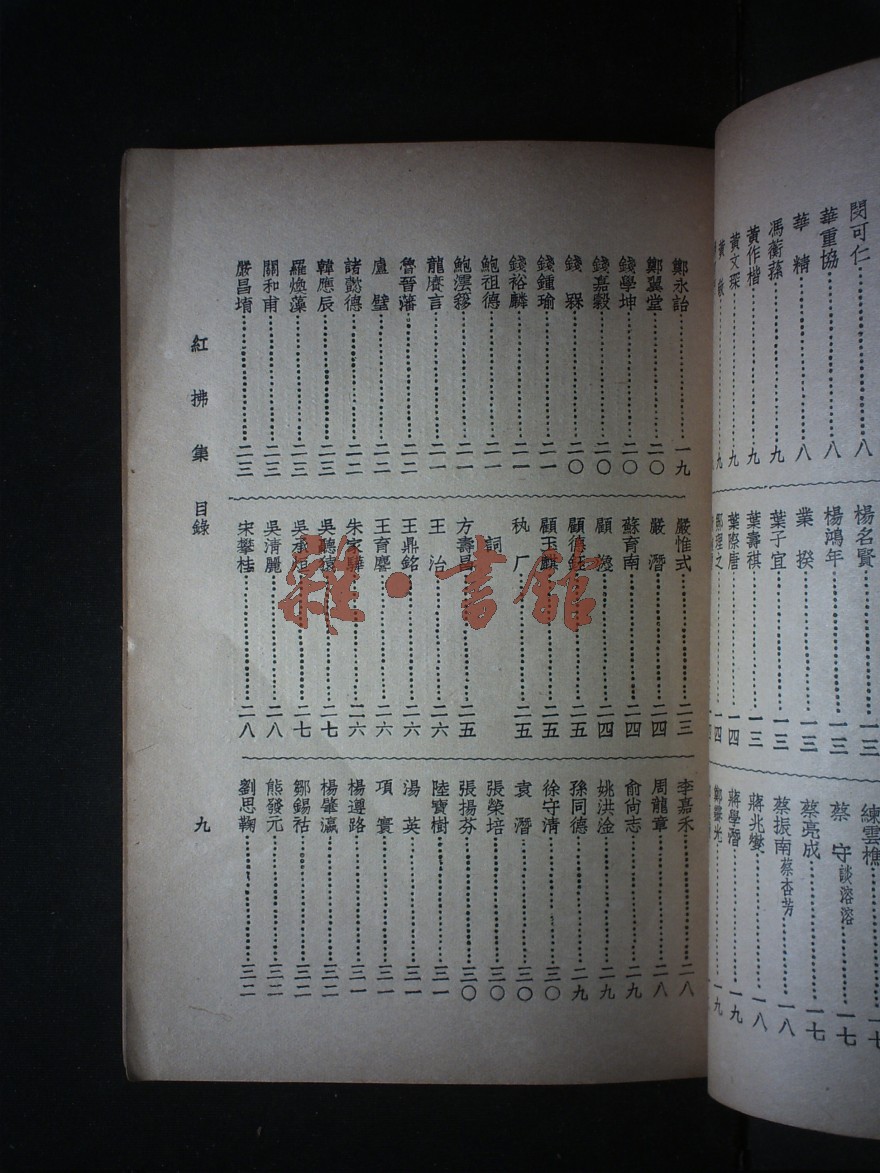 閔可仁……八
華重協……八
華 精……八
馮蘅蓀……九
黃作楷……九
黃文琛……九
楊名賢……一三
楊鴻年……一三
業 揆……一三
葉子宜……一三
葉壽祺……一三
葉際唐……一四
練雲樵……一七
蔡 守談溶溶……一七
蔡亮成……一七
蔡振南蔡杏芳……一八
蔣兆燮……一八
蔣學潛……一九
鄭永詒……一九
鄭翼堂……二〇
錢學坤……二〇
錢嘉穀……二〇
錢 槑……二〇
錢鍾瑜……二一
錢裕麟……二一
鮑祖德……二一
龍賡言……二一
魯晉藩……二二
盧 璧……二二
諸懿德……二二
韓應辰……二三
羅煥藻……二三
關和甫……二三
嚴昌堉……二三
嚴惟式……二三
嚴 潛……二四
蘇育南……二四
顧玉麒……二五
執厂……二五
詞
方壽昌……二五
王 治……二六
王鼎銘……二六
王育麐……二六
朱家驊……二六
吳聽猿……二七
吳承烜……二七
吳清麗……二八
宋攀桂……二八
李嘉禾……二八
周龍章……二八
俞尙志……二九
姚洪淦……二九
孫同德……二九
徐守清……三〇
袁 潛……三〇
張榮培……三〇
張揚芬……三〇
陸寶樹……三一
湯 英……三一
項 寰……三一
楊遵路……三一
楊肇瀛……三二
鄒錫祜……三二
熊發元……三二
劉思鞠……三二
紅拂集 目錄
九
雜·書館